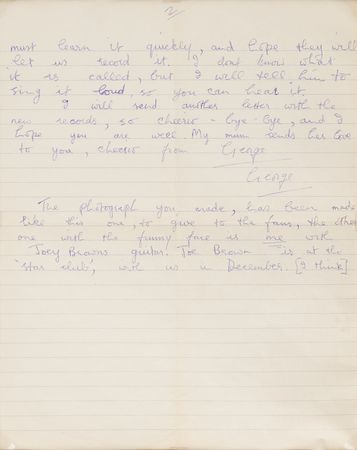 2
must learn it quickly, and hope they will
let us record it. I dont know what
it is called, but I will tell him to
sing it loud, so you can hear it.
I will send another letter with the
new records, so cheerio - bye-bye, and I
hope you are well. My mum sends her love
to you, cheerio from George
George
The photograph you made, has been made
like this one, to give to the fans, the other
one with the funny face is me with
Joey Browns guitar. Joe Brown is at the
'star club', with us in December. [I think]